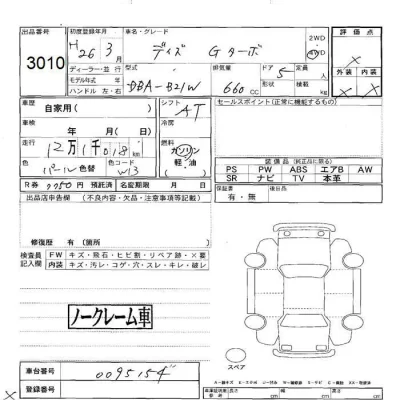 出品番号 初度登録年月 車名・グレード 評価点
3010 H26年3月 デイズ Gターボ 2WD 4WD ×
ディーラー・並行 型式 排気量 ドア 定員 外装 内装
モデル年式 年 DBA-B21W 660 CC 5 形状 積載 人 kg × ×
ハンドル 左・右
車歴 自家用( ) シフト AT セールスポイント(正常に機能するもの)
車検 年 月( ) 冷房
走行 12万1千018km 燃料 ガソリン 軽油
色 パール 色替 色コード W13
装備品(純正品に限る)
PS PW ABS エアB AW
SR ナビ TV 本革
R券 預託済 名変期限 月 日 保証書 有・無 後日品
出品店申告欄 (不良内容・欠品・注意事項等記載)
修復歴 有(箇所
検査員記入欄 FW キズ・飛石・ヒビ割・リペア跡・×要
内装 キズ・汚レ・コゲ・穴・スレ・キレ・破レ
ノークレーム車
スペア
車台番号
登録番号
×